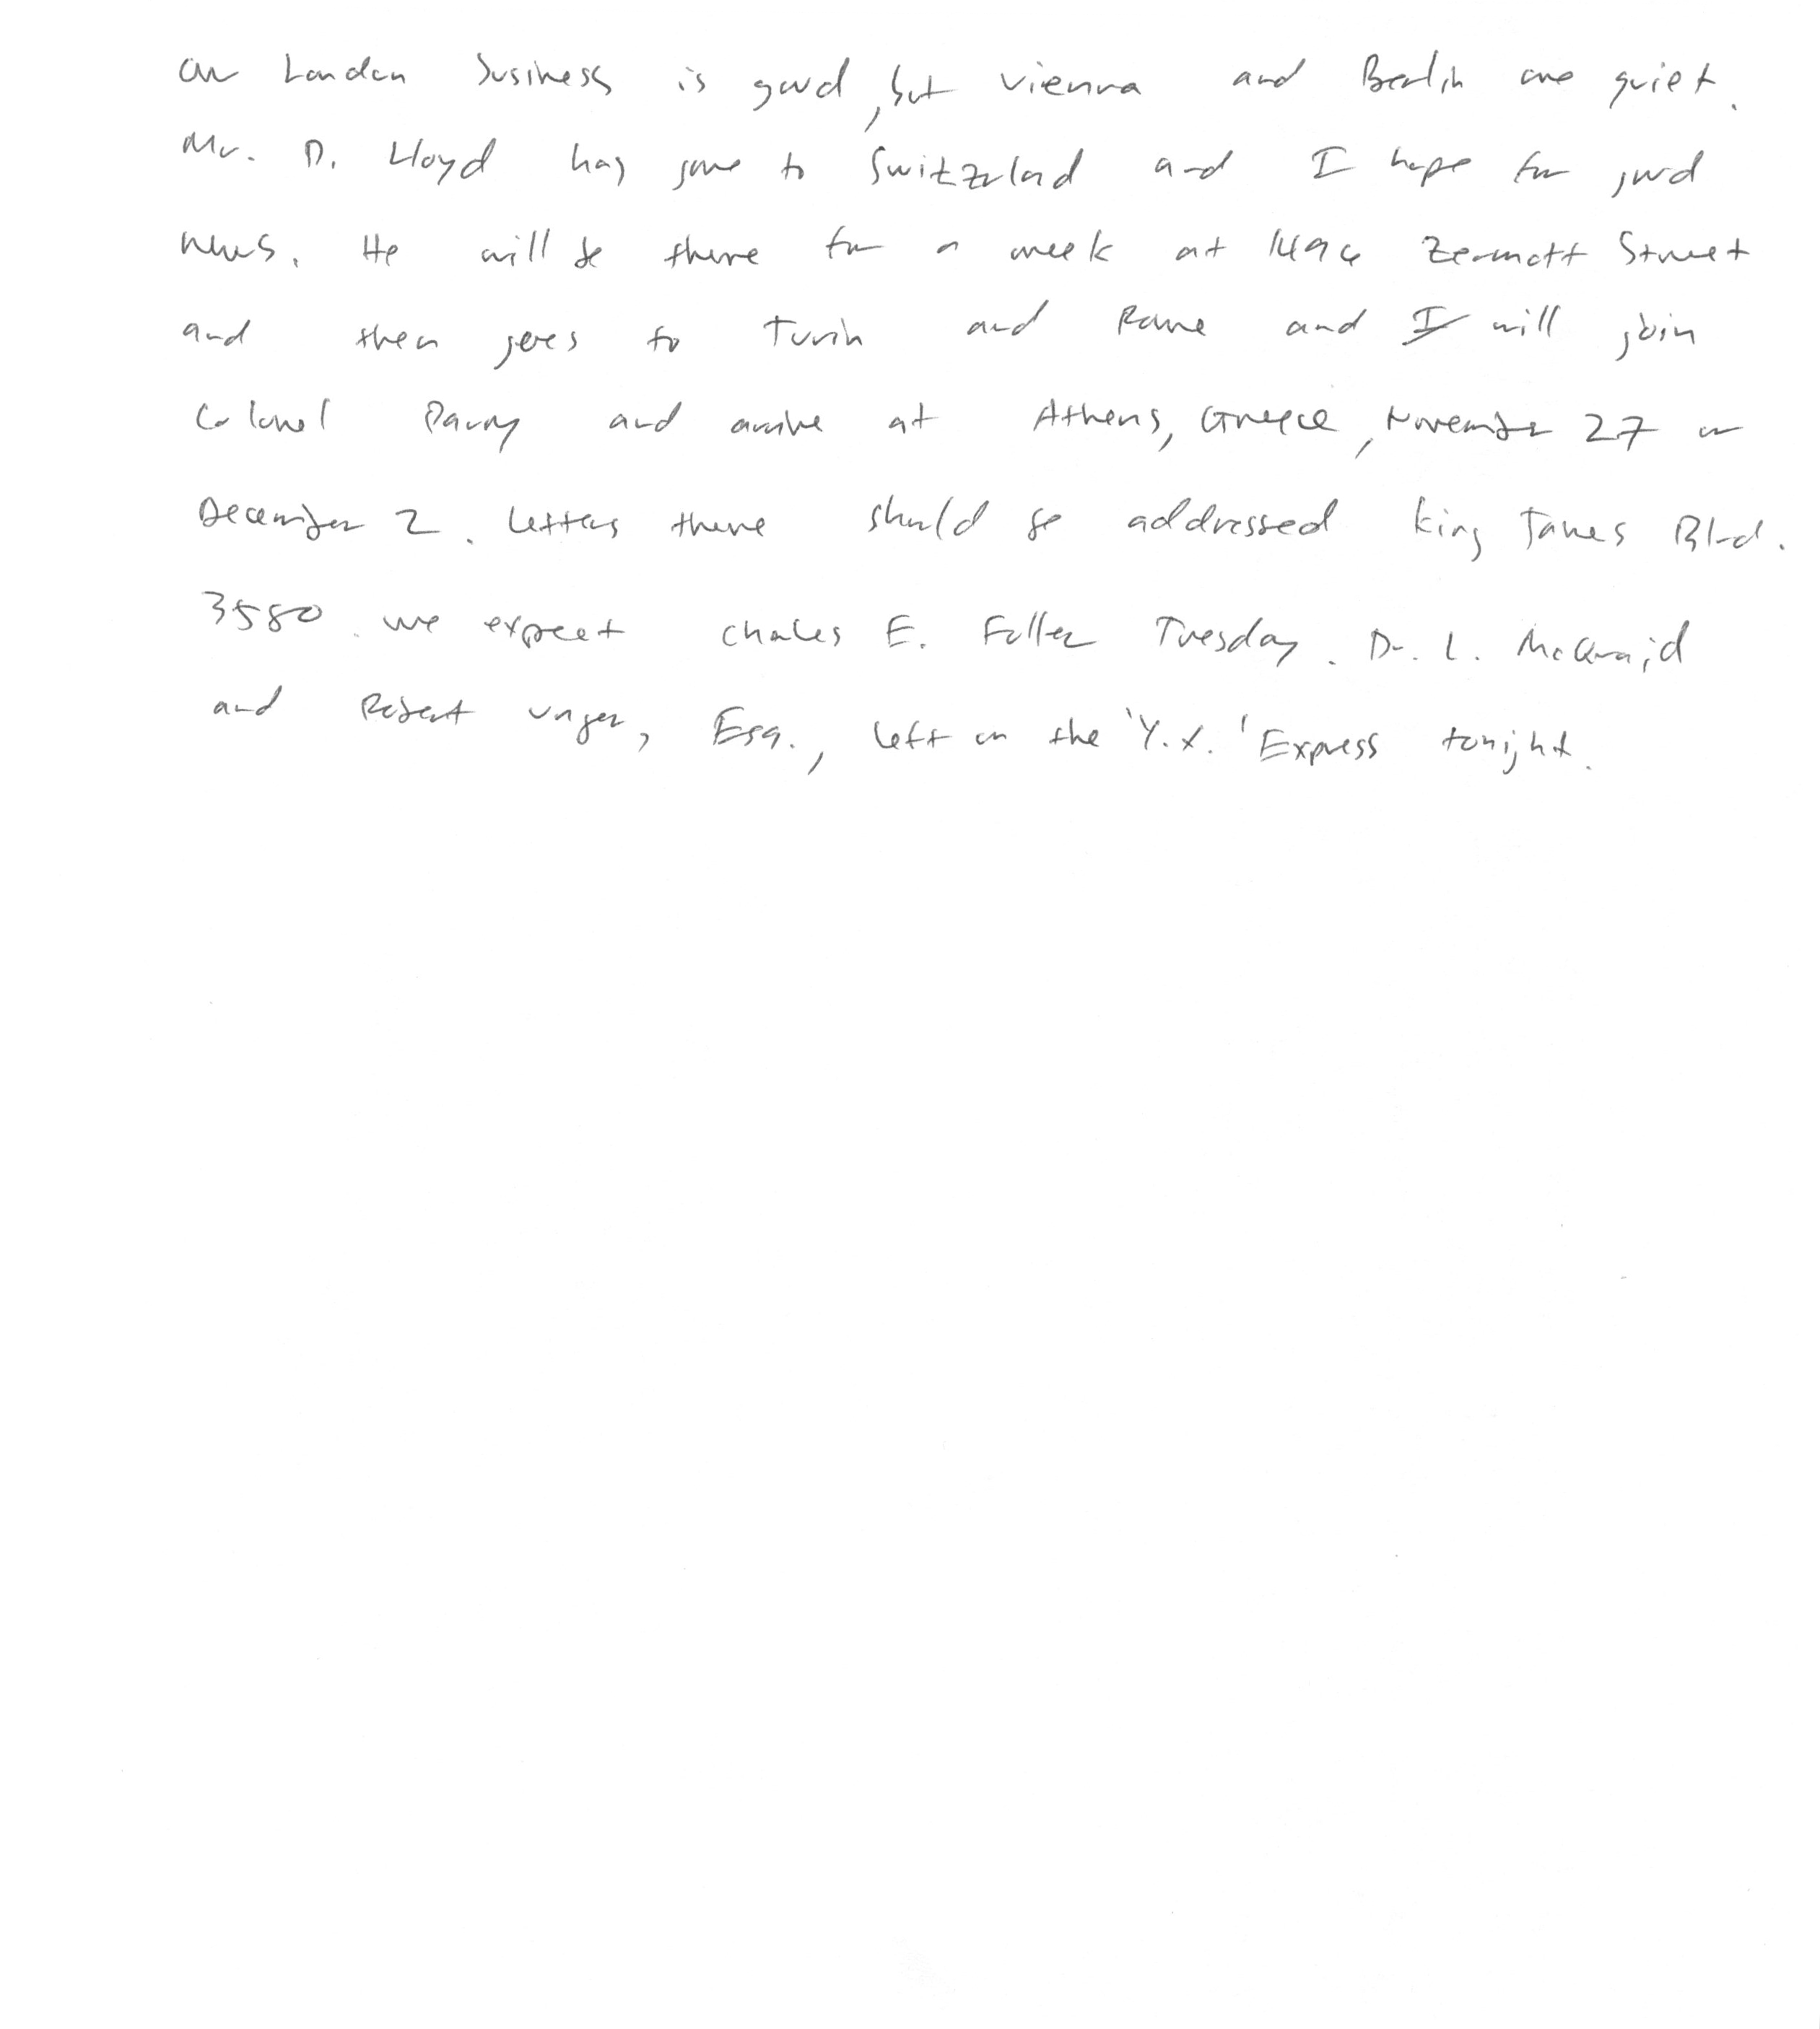 Our London business is good, but Vienna and Berlin are quiet.
Mr. D. Lloyd has gone to Switzerland and I hope for good
news. He will be there for a week at 1496 Zermott Street
and then goes to Turin and Rome and I will join
Colonel Parry and arrive at Athens, Greece, November 27 or
December 2. Letters there should be addressed King James Blvd.
3580. We expect Charles E. Fuller Tuesday. Dr. L. McQuaid
and Robert Unger, Esq., left on the 'Y.X.' Express tonight.